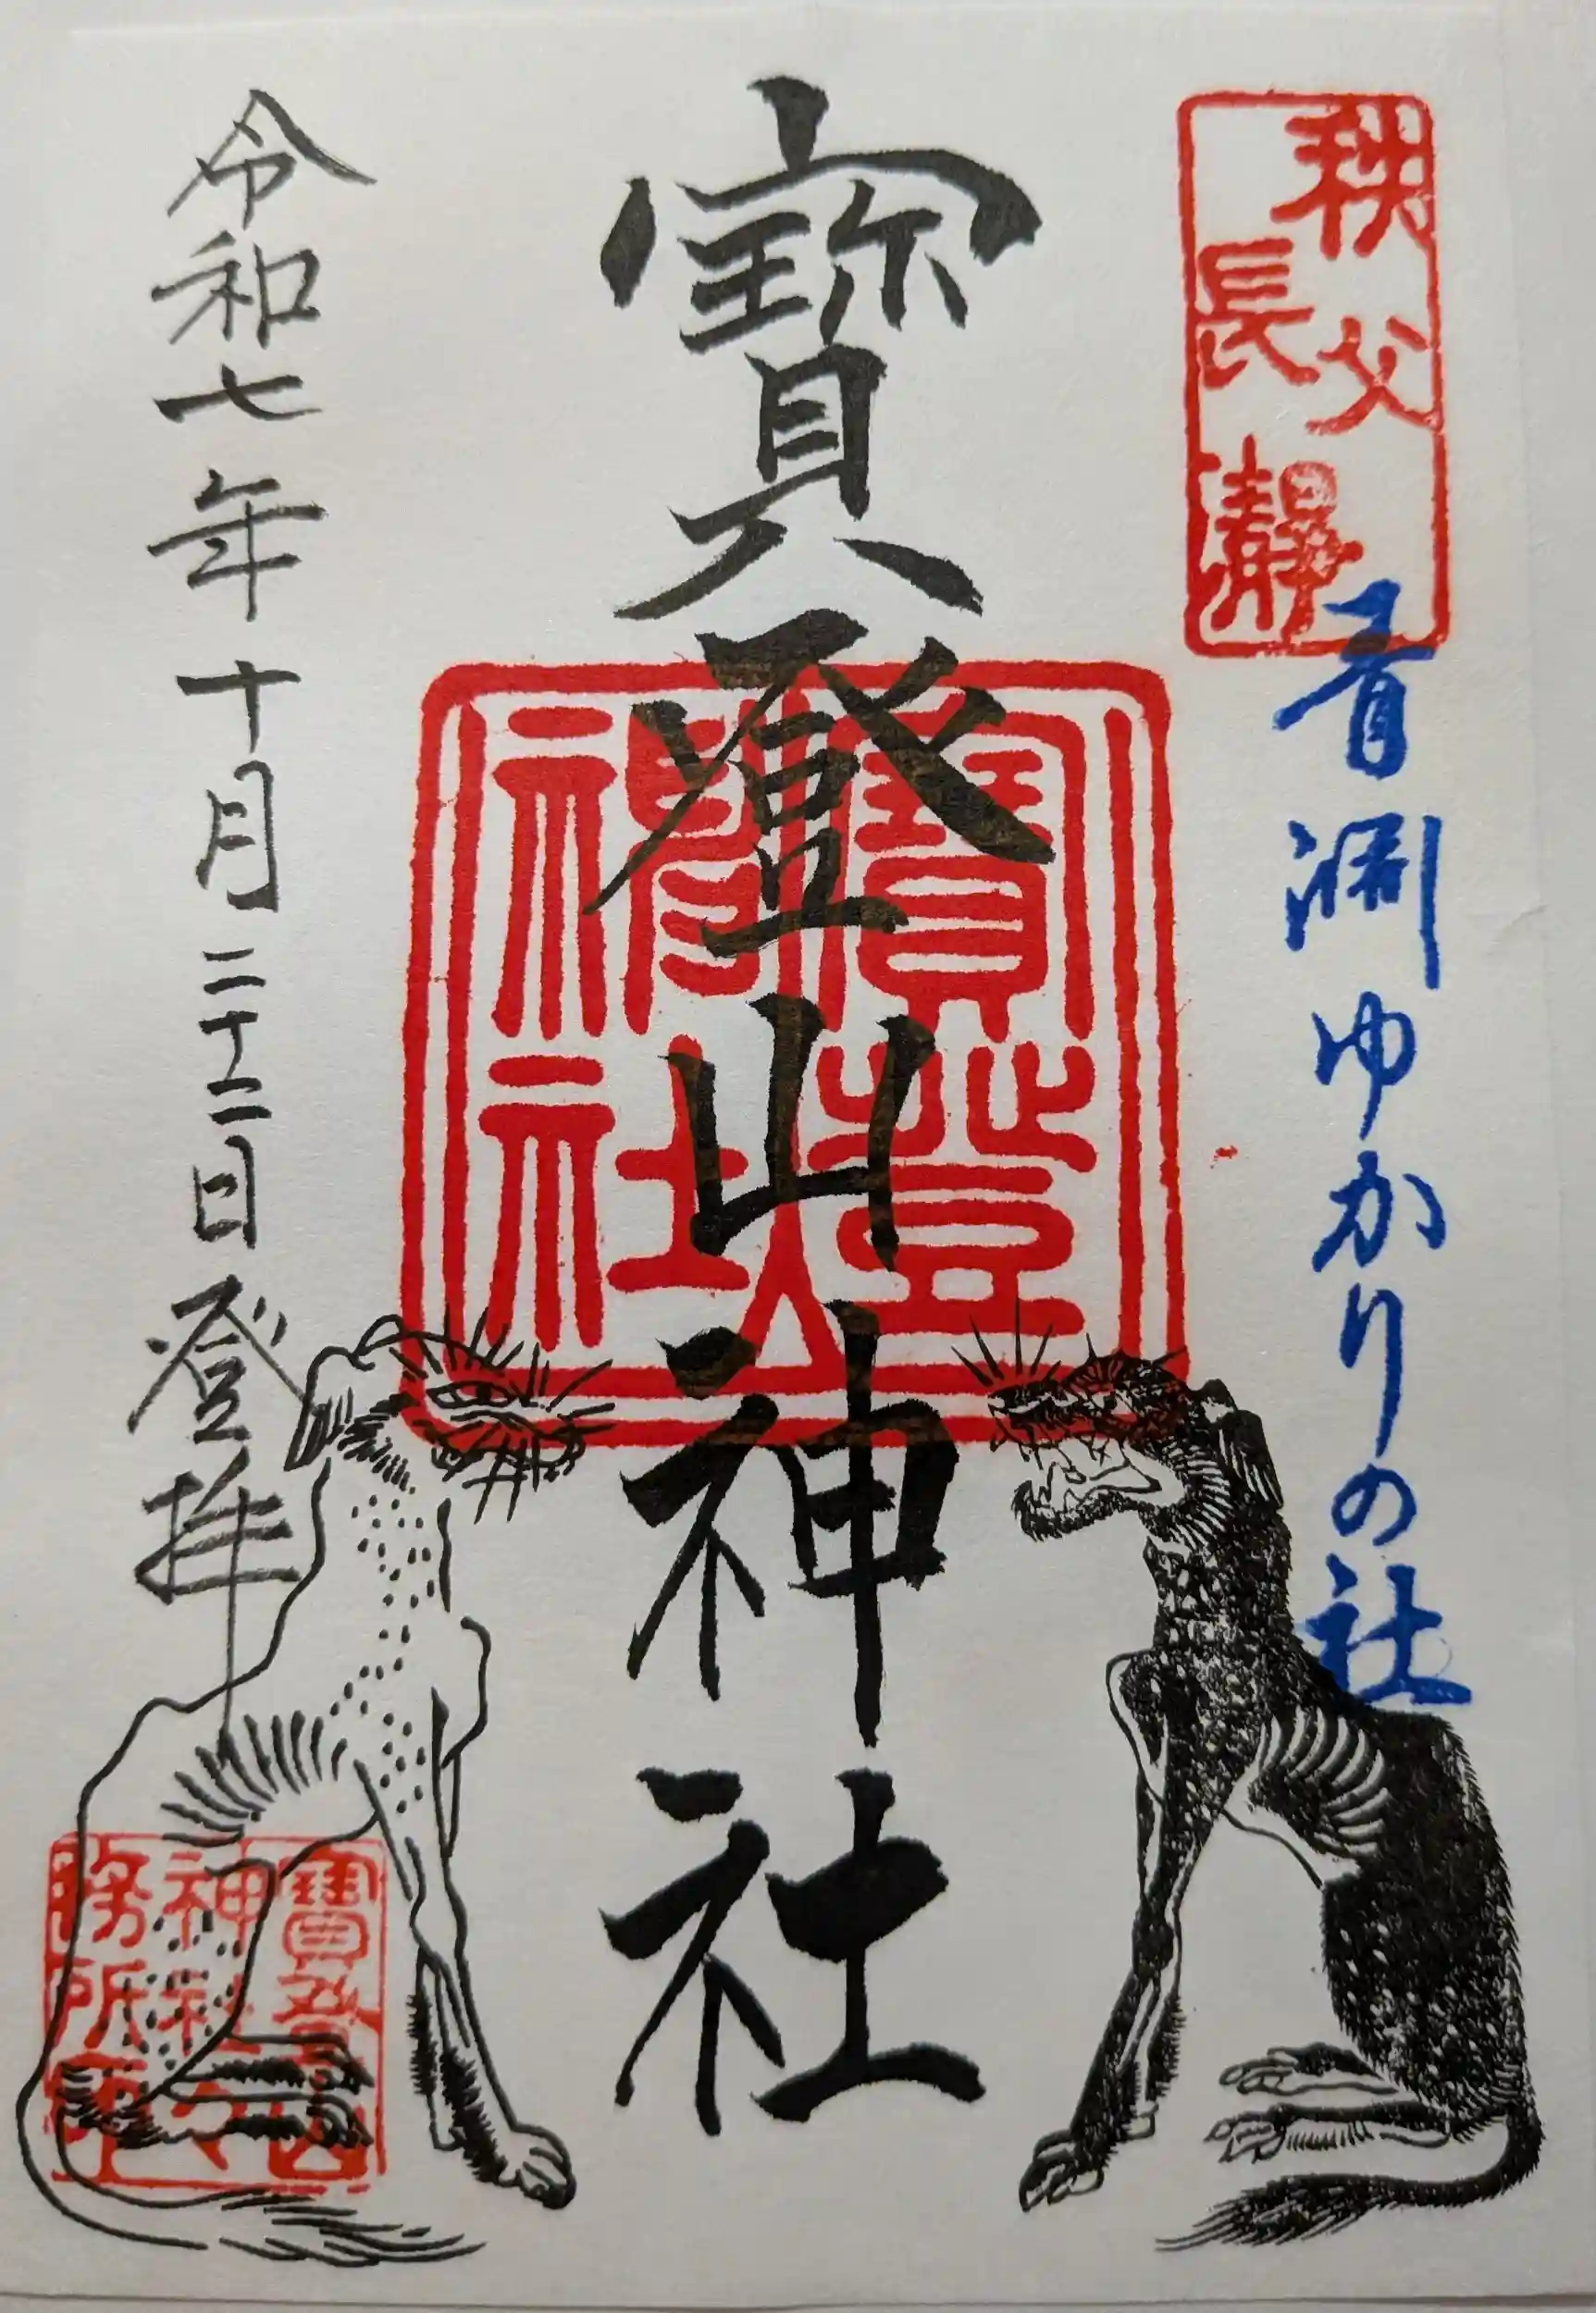 秩父
長瀞
青淵ゆかりの社
寳登山神社
寶登山神社
令和七年十月二十二日登拝
寶登山
神社々
務所印